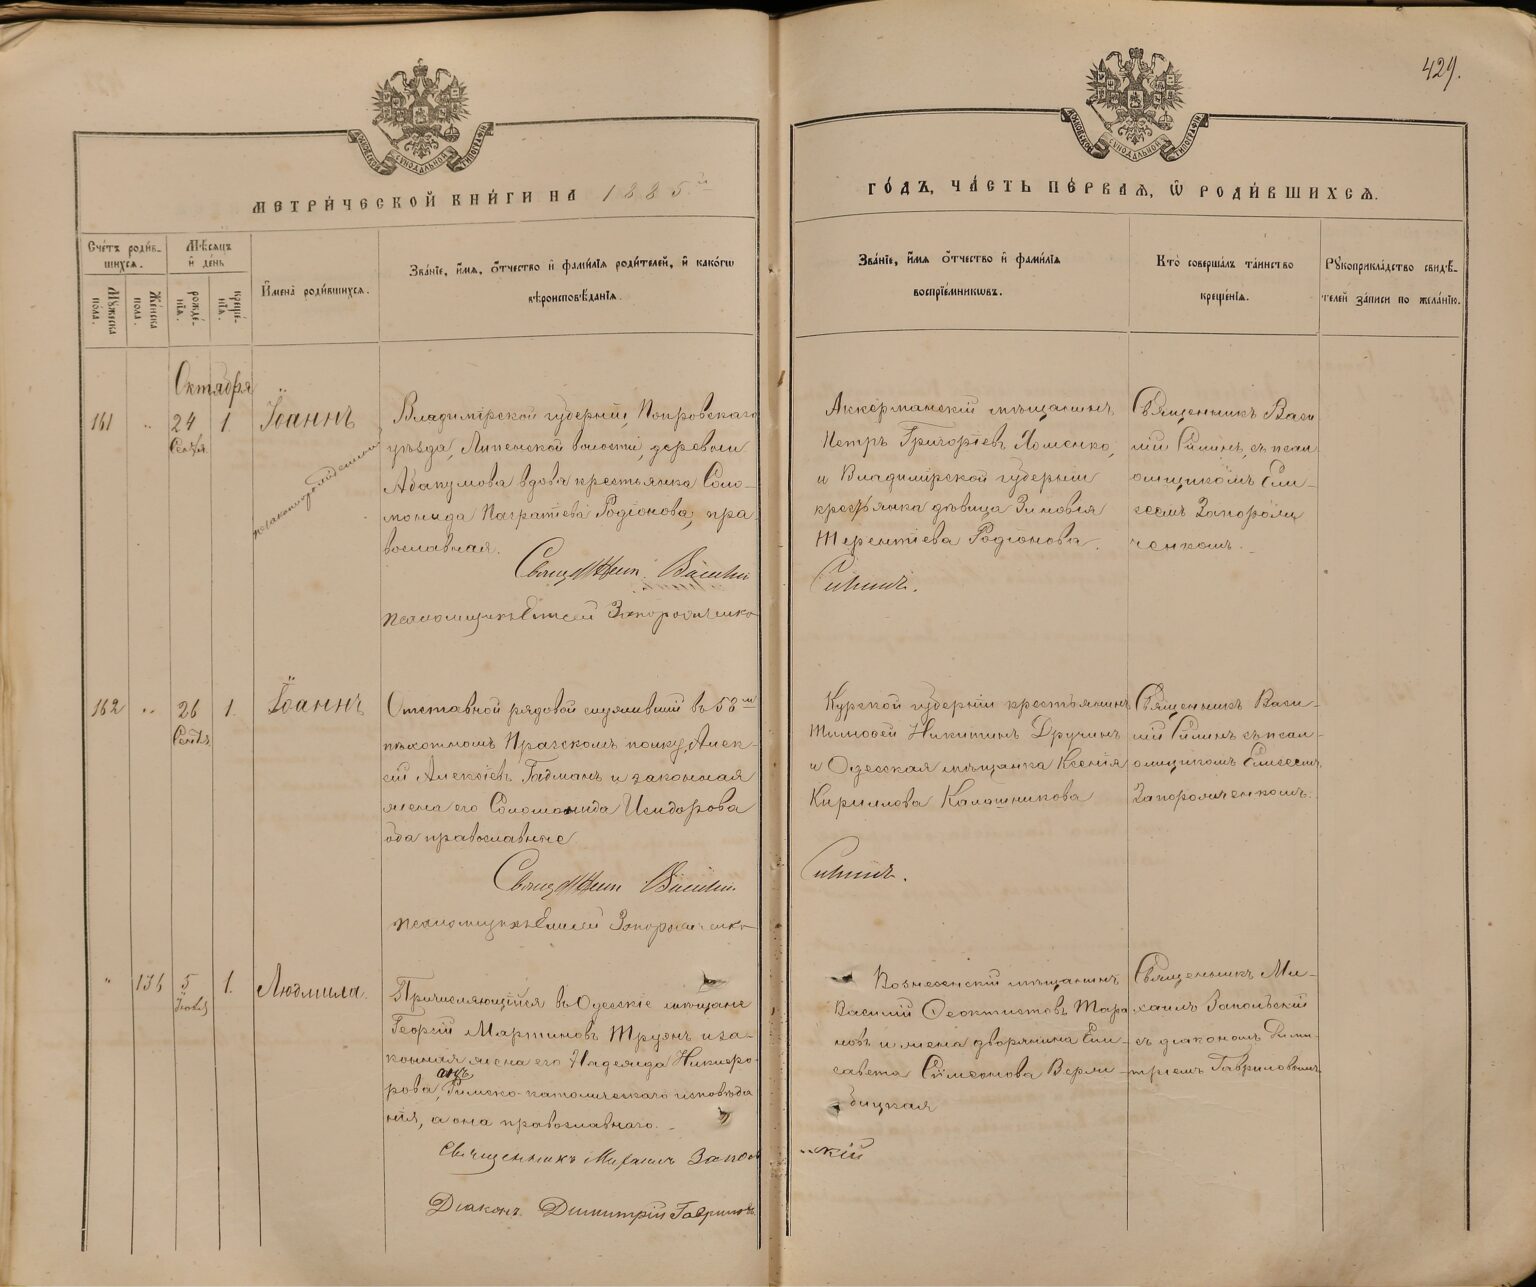 429.
МОСКОВСКОЙ СѴНОДАЛЬНОЙ ТИПОГРАФІИ
МОСКОВСКОЙ СѴНОДАЛЬНОЙ ТИПОГРАФІИ
МЕТРИ́ЧЕСКОЙ КНИ́ГИ НА 1885 й
ГО́ДЪ, ЧА́СТЬ ПЕ́РВАѦ, Ѡ҆ РОДИ́ВШИХСѦ.
Сче́тъ роди́в-
шихсѧ.
Мꙋ́жеска по́ла.
Же́нска по́ла.
Мѣ́сѧцъ
и҆ де́нь
рожде́-
нїѧ.
креще́-
нїѧ.
И҆мена̀ роди́вшихсѧ.
Зва́нїе, и҆́мѧ, ѻ҆́тчество и҆ фами́лїѧ роди́телей, и҆ како́гѡ
вѣроисповѣ́данїѧ.
Зва́нїе, и҆́мѧ ѻ҆́тчество и҆ фами́лїѧ
воспрїе́мникѡвъ.
Кто̀ соверша́лъ та́инство
креще́нїѧ.
Рꙋкоприкла́дство свидѣ́-
телей за́писи по жела́нїю.
Октября
161 " 24 1 Іоаннъ
Сентяб.
незаконнорожденный
Владимірской губерніи, Покровскаго
уѣзда, Липенской волости, деревни
Абакумова вдова крестьянка Соло-
монида Панратіева Родіонова, пра
вославная.
Священник Василій
псаломщикъ Елисей Запорожченко
Аккерманскій мѣщанинъ
Петръ Григоріевъ Хоменко,
и Владимірской губерніи
крестьянка дѣвица Зиновія
Терентіева Родіонова.
Силинъ.
Священникъ Васи
лій Силинъ, съ псал
омщикомъ Ели-
сеемъ Запорож
ченкомъ.
162 " 26 1 Іоаннъ
Сентяб
Отставной рядовой служившій въ 58 м
пѣхотномъ Прагскомъ полку, Алек-
сѣй Алексіевъ Гадманъ и законная
жена его Соломонида Исидорова
оба православные
Священник Василій
псаломщикъ Елисей Запорожченко
Курской губерніи крестьянинъ
Тимофей Никитинъ Дручинъ
и Одесская мѣщанка Ксенія
Кириллова Калашникова
Силинъ.
Священникъ Васи-
лій Силинъ съ псал-
омщикомъ Елисеемъ
Запорожченкомъ.
" 136 5 1. Людмила.
Причисляющійся въ Одесскіе мѣщане
Георгій Мартиновъ Труэнъ и за-
конная жена его Надежда Никифо-
рова, онъ Римско-католическаго исповѣда
нія, а она православнаго.
Священникъ Михаилъ Заполь
скій
Діаконъ Димитрій Гавриловъ.
Вознесенскій мѣщанинъ
Василій Феоктистовъ Тара
новъ и жена дворянина Ели-
савета Симеонова Верж-
бицкая
Священникъ Ми-
хаилъ Запольскій
съ діакономъ Дими-
тріемъ Гавриловымъ